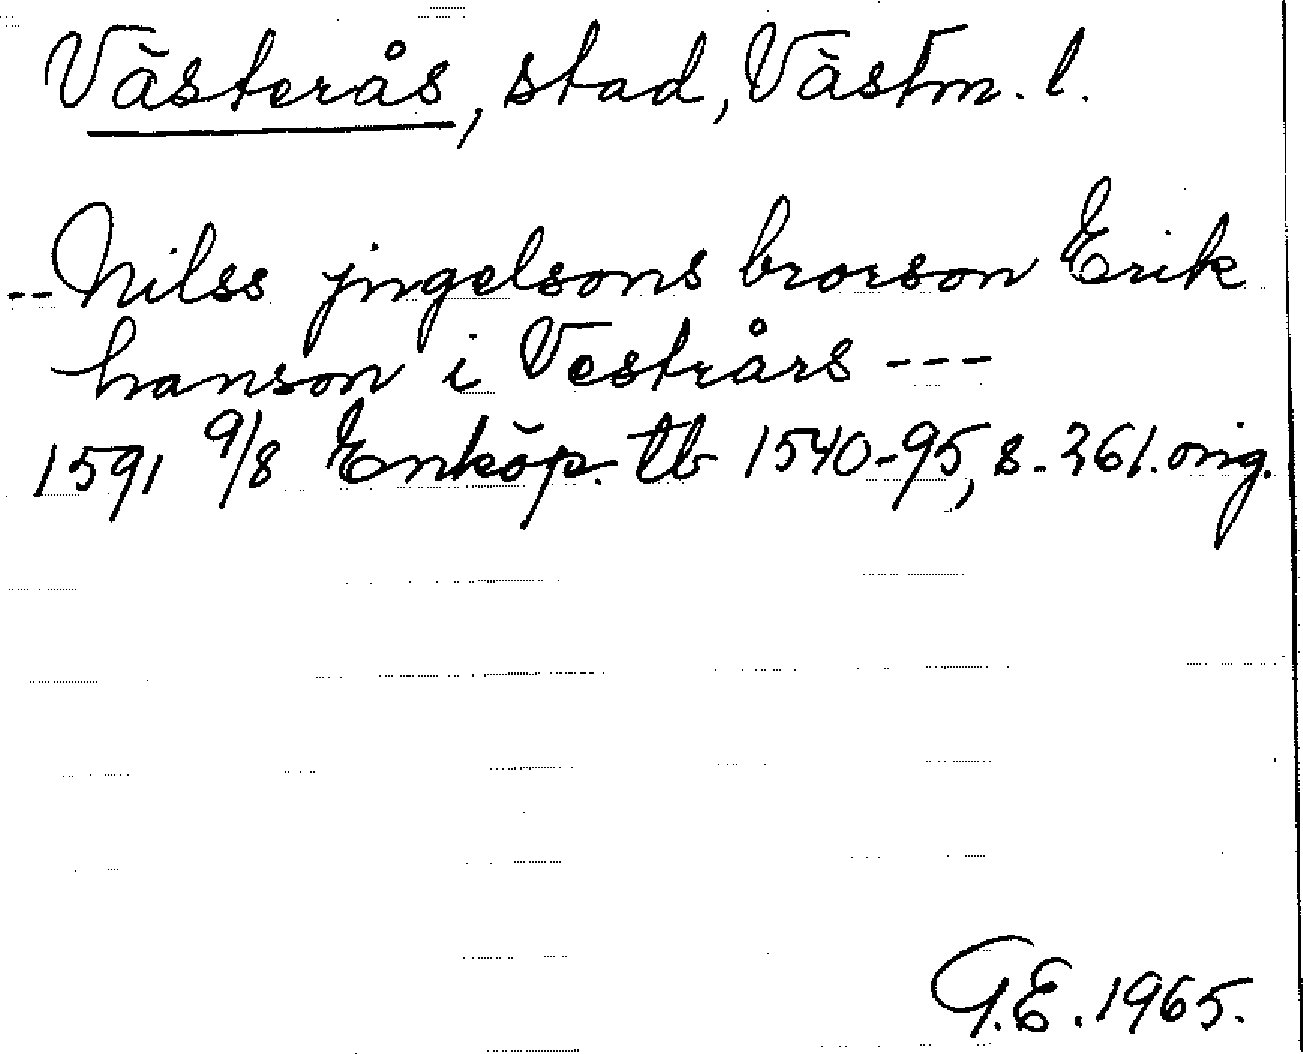 Västerås, stad, Västm. l.
-- Nilss jngelsons brorson Erik
hanson i Vestrårs ---
1591 9/8 Enköp. tb 1540-95, s. 361. orig.
G.E. 1965.